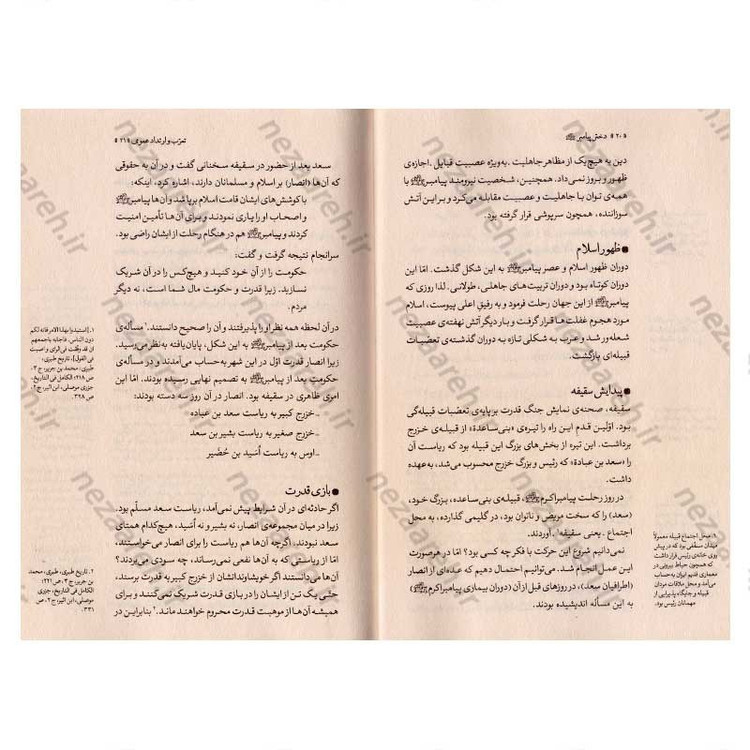 «۲۰» دختر پیامبر ﷺ
دین به هیچ یک از مظاهر جاهلیت، به‌ویژه عصبیت قبایل، اجازه‌ی
ظهور و بروز نمی‌داد. همچنین، شخصیت نیرومند پیامبر ﷺ با
همه‌ی توان با جاهلیت و عصبیت مقابله می‌کرد و بر این آتش
سوزاننده، همچون سرپوشی قرار گرفته بود.
● ظهور اسلام
دوران ظهور اسلام و عصر پیامبر ﷺ به این شکل گذشت. امّا این
دوران کوتاه بود و دوران تربیت‌های جاهلی، طولانی. لذا روزی که
پیامبر ﷺ از این جهان رحلت فرمود و به رفیق اعلی پیوست، اسلام
مورد هجوم غفلت‌ها قرار گرفت و بار دیگر آتش نهفته‌ی عصبیت
شعله‌ور شد و عرب به شکلی تازه به دوران گذشته‌ی تعصّبات
قبیله‌ای بازگشت.
● پیدایش سقیفه
سقیفه، صحنه‌ی نمایش جنگ قدرت بر پایه‌ی تعصّبات قبیله‌گی
بود. اوّلین قدم این راه را تیره‌ی «بنی‌ساعده» از قبیله‌ی خزرج
برداشت. این تیره از بخش‌های بزرگ این قبیله بود که ریاست آن
را «سعد بن عبادة» که رئیس و بزرگ خزرج محسوب می‌شد، به‌عهده
داشت.
در روز رحلت پیامبر اکرم ﷺ، قبیله‌ی بنی‌ساعده، بزرگ خود،
(سعد) را که سخت مریض و ناتوان بود، در گلیمی گذارده، به محل
اجتماع ـ یعنی سقیفه ـ آوردند.
نمی‌دانیم شروع این حرکت با فکر چه کسی بود؟ امّا در هر صورت
این عمل انجام شد. می‌توانیم احتمال دهیم که عده‌ای از انصار
(اطرافیان سعد)، در روزهای قبل از آن (دوران بیماری پیامبر اکرم ﷺ)
به این مسأله اندیشیده بودند.
۱. محل اجتماع قبیله معمولاً
میدان سقفی بود که در پیش
روی خانه‌ی رئیس قرار داشت
که همچون حیاط بیرونی در
معماری قدیم ایران به حساب
می‌آمد و محل ملاقات مردان
قبیله و جایگاه پذیرایی از
مهمانان رئیس بود.
تعرّب و ارتداد عمومی «۲۱»
سعد بعد از حضور در سقیفه سخنانی گفت و در آن به حقوقی
که آن‌ها (انصار) بر اسلام و مسلمانان دارند، اشاره کرد، اینکه:
با کوشش‌های ایشان قامت اسلام برپا شد و آن‌ها پیامبر ﷺ
و اصحاب او را یاری نمودند و برای آن‌ها تأمین امنیت
کردند و پیامبر ﷺ هم در هنگام رحلت از ایشان راضی بود.
سرانجام نتیجه گرفت و گفت:
حکومت را از آنِ خود کنید و هیچ‌کس را در آن شریک
نسازید. زیرا قدرت و حکومت مال شما است، نه دیگر
مردم.
در آن لحظه همه نظر او را پذیرفتند و آن را صحیح دانستند.۱ مسأله‌ی
حکومت بعد از پیامبر ﷺ به این شکل، پایان‌یافته به‌نظر می‌رسید.
زیرا انصار قدرت اوّل در این شهر به‌حساب می‌آمدند و در مسأله‌ی
حکومت بعد از پیامبر ﷺ به تصمیم نهایی رسیده بودند. امّا این
امری ظاهری در سقیفه بود. انصار در آن روز سه دسته بودند:
ـ خزرج کبیر به ریاست سعد بن عباده
ـ خزرج صغیر به ریاست بشیر بن سعد
ـ اوس به ریاست اُسَید بن حُضَیر
● بازی قدرت
اگر حادثه‌ای در آن شرایط پیش نمی‌آمد، ریاست سعد مسلّم بود.
زیرا در میان مجموعه‌ی انصار، نه بشیر و نه اُسَید، هیچ‌کدام همتای
سعد نبودند. اگر چه آن‌ها هم ریاست را برای انصار می‌خواستند،
امّا از ریاستی که به آن‌ها نفعی نمی‌رساند، چه سودی می‌بردند؟
آن‌ها می‌دانستند اگر خویشاوندانشان از خزرج کبیر به قدرت برسند،
حتّی یک تن از ایشان را در بازی قدرت شریک نمی‌کنند و برای
همیشه آن‌ها از موهبت قدرت محروم خواهند ماند.۲ بنابراین در
دون الناس.
تاریخ طبری،
طبری، محمد بن جریر، ج ۳،
الکامل فی التاریخ،
جزری موصلی، ابن اثیر، ج ۲،
ص ۳۲۸.
۲. تاریخ طبری، طبری، محمد
بن جریر، ج ۳، ص ۲۲۱؛
الکامل فی التاریخ، جزری
موصلی، ابن اثیر، ج ۲، ص
۳۳۱.
nezaareh.ir